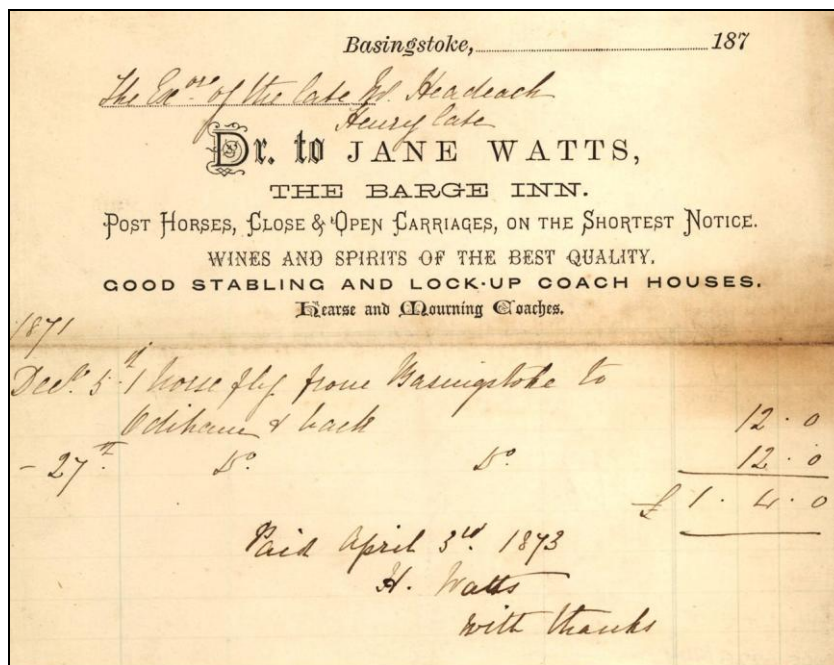 Basingstoke, 187
The Exors of the late Headeach
Henry Cate
Dr. to JANE WATTS,
THE BARGE INN.
POST HORSES, CLOSE & OPEN CARRIAGES, ON THE SHORTEST NOTICE.
WINES AND SPIRITS OF THE BEST QUALITY.
GOOD STABLING AND LOCK-UP COACH HOUSES.
Hearse and Mourning Coaches.
1871
Decr. 5th 1 horse fly from Basingstoke to
Odiham & back 12.0
- 27th Do Do 12.0
£ 1.4.0
Paid April 3rd. 1873
H. Watts
with thanks